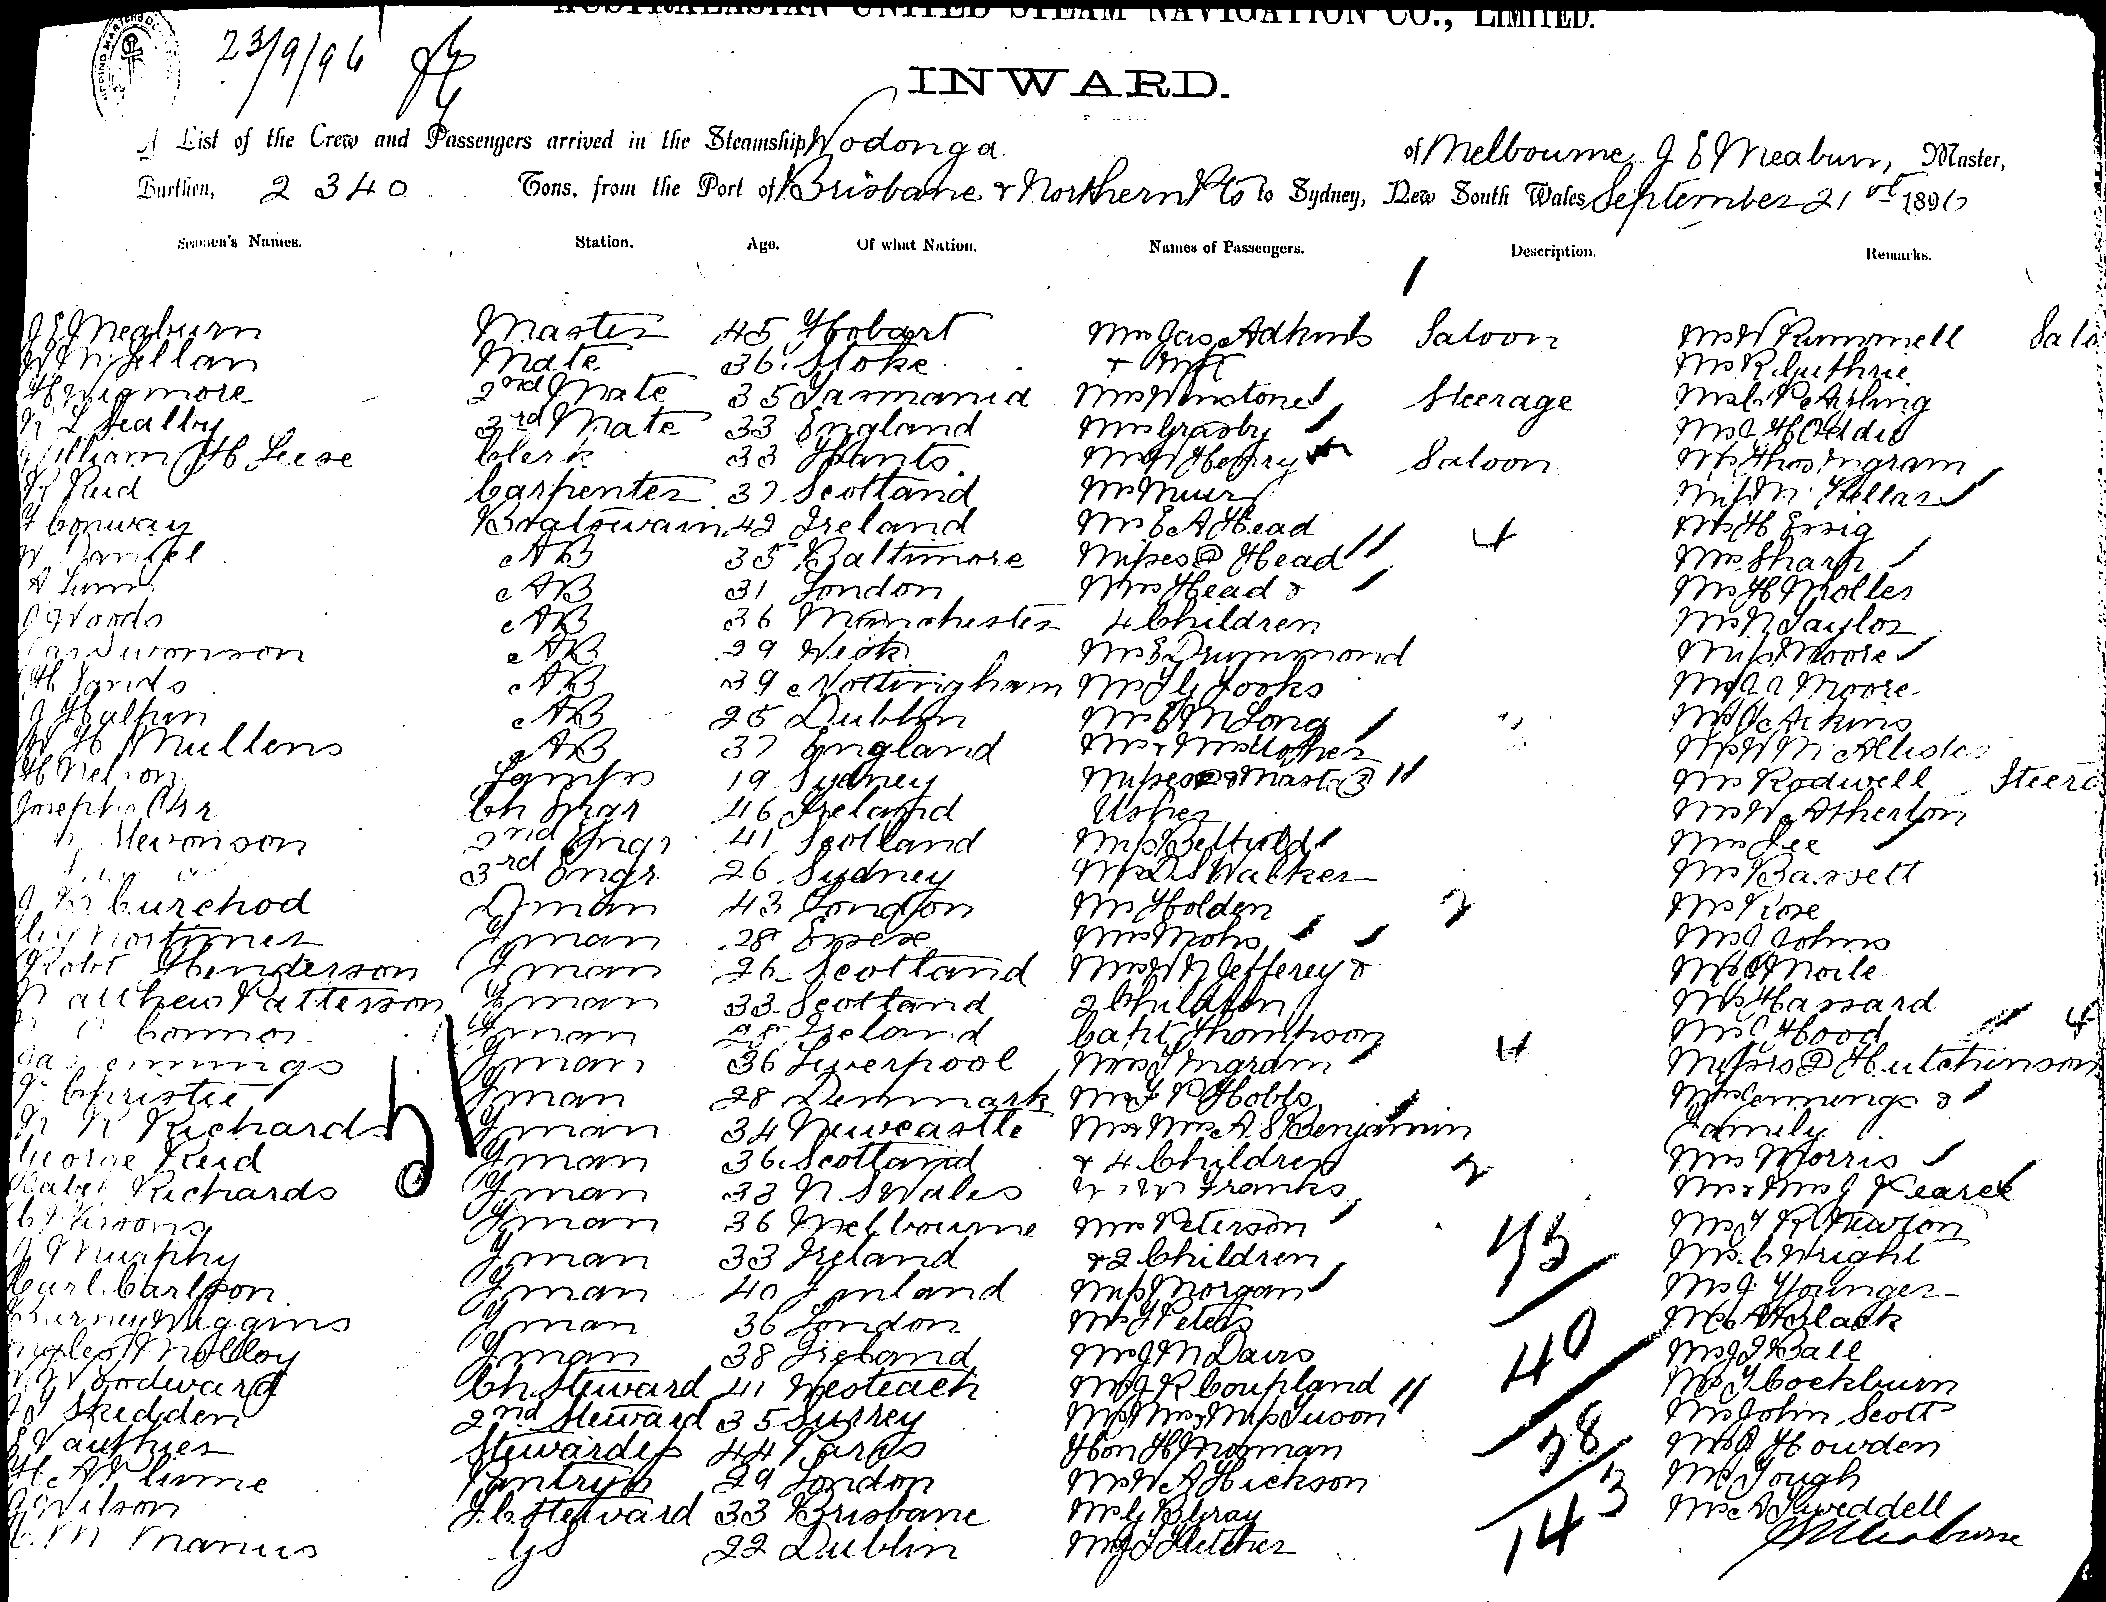 AUSTRALASIAN UNITED STEAM NAVIGATION CO., LIMITED.
23/9/96
INWARD.
A List of the Crew and Passengers arrived in the Steamship Wodonga of Melbourne, J E Meaburn, Master,
Burthen, 2340 Tons, from the Port of Brisbane & Northern Pts to Sydney, New South Wales September 21st 1896
Seamen's Names. Station. Age. Of what Nation. Names of Passengers. Description. Remarks.
J E Meaburn Master 45 Hobart Mr Jas Adkins Saloon Mr W Rummell Saloo
Mate 36 Stoke Mr R Guthrie
H Wigmore 2nd Mate 35 Tasmania Mrs Winstone Steerage
3rd Mate 33 England Mrs Grasby
William H Leese Clerk 33 Hants Mr W Henry Saloon Mr Thos Ingram
R Reid Carpenter 37 Scotland Mr Muir
T Conway Boatswain 42 Ireland Mr E A Head 4 Mr H Essig
W Daniel AB 35 Baltimore Misses (2) Head Mrs Sharp
A Lunn AB 31 London Mrs Head & Mr H Moller
J Woods AB 36 Manchester 4 Children Mr N Taylor
Jas Swonson AB 29 Wick Mr E Drummond Miss Moore
H Sands AB 39 Nottingham Mr J G Jooks Mr A A Moore
J Halpin AB 25 Dublin Mr E M Long Mr J C Arkins
W H Mullens AB 37 England Mr & Mrs Usher Mr W McAllister
H Nelson Lamps 19 Sydney Misses & Mast (3) Mr Rodwell Steera
Joseph Orr Ch Engr 46 Ireland Usher Mr W Atherton
Stevonson 2nd Engr 41 Scotland Mrs Lee
3rd Engr 26 Sydney Mr D S Walker Mr Bassett
Burchod Dman 43 London Mr Holden 2 Mr Rose
Mortimer Fman 28 Essex Mrs Mohs Mr J Johns
Robt Henderson Fman 26 Scotland Mrs W N Jefferey &
Matthew Patterson Fman 33 Scotland 2 Children Mr Hassard
Connor Fman 28 Ireland Capt Thompson Mr J Hood 4
Jas Jennings Fman 36 Liverpool Mrs J Ingram 4 Misses (2) Hutchinson
Christie Fman 28 Denmark Mr J P Hobbs Mrs Jennings &
N N Richards Fman 34 Newcastle Mr & Mrs A S Benjamin Family
George Reid Fman 36 Scotland & 4 Children 2 Mrs Morris
Richards Fman 33 N S Wales Franks Mr & Mrs J Pearce
Fman 36 Melbourne Mrs Peterson Mr T R Newton
J Murphy Fman 33 Ireland & 2 Children Mr C Wright
Carl Carlson Fman 40 Finland Miss Morgan Mr J Younger
Barney Wiggins Fman 36 London Mr J Peters Black
Myles Molloy Fman 38 Ireland Mr J M Davis 40 Mr J J Ball
Woodward Ch Steward 41 Mr J R Coupland Mr J Cockburn
Skidden 2nd Steward 35 Surrey Mr Mrs & Miss Tuson Mr John Scott
Vauthier Stewardess 44 Paris Hon H Norman 38 Mr J Howden
H A Plume Pantryn 29 London Mr W A Hickson Mr J Gough
J Wilson F.C. Steward 33 Brisbane Mr G B Gray 3 Mr A Tweddell
C. M Manus GS 22 Dublin Mr J J Fletcher 14 J E Meaburn